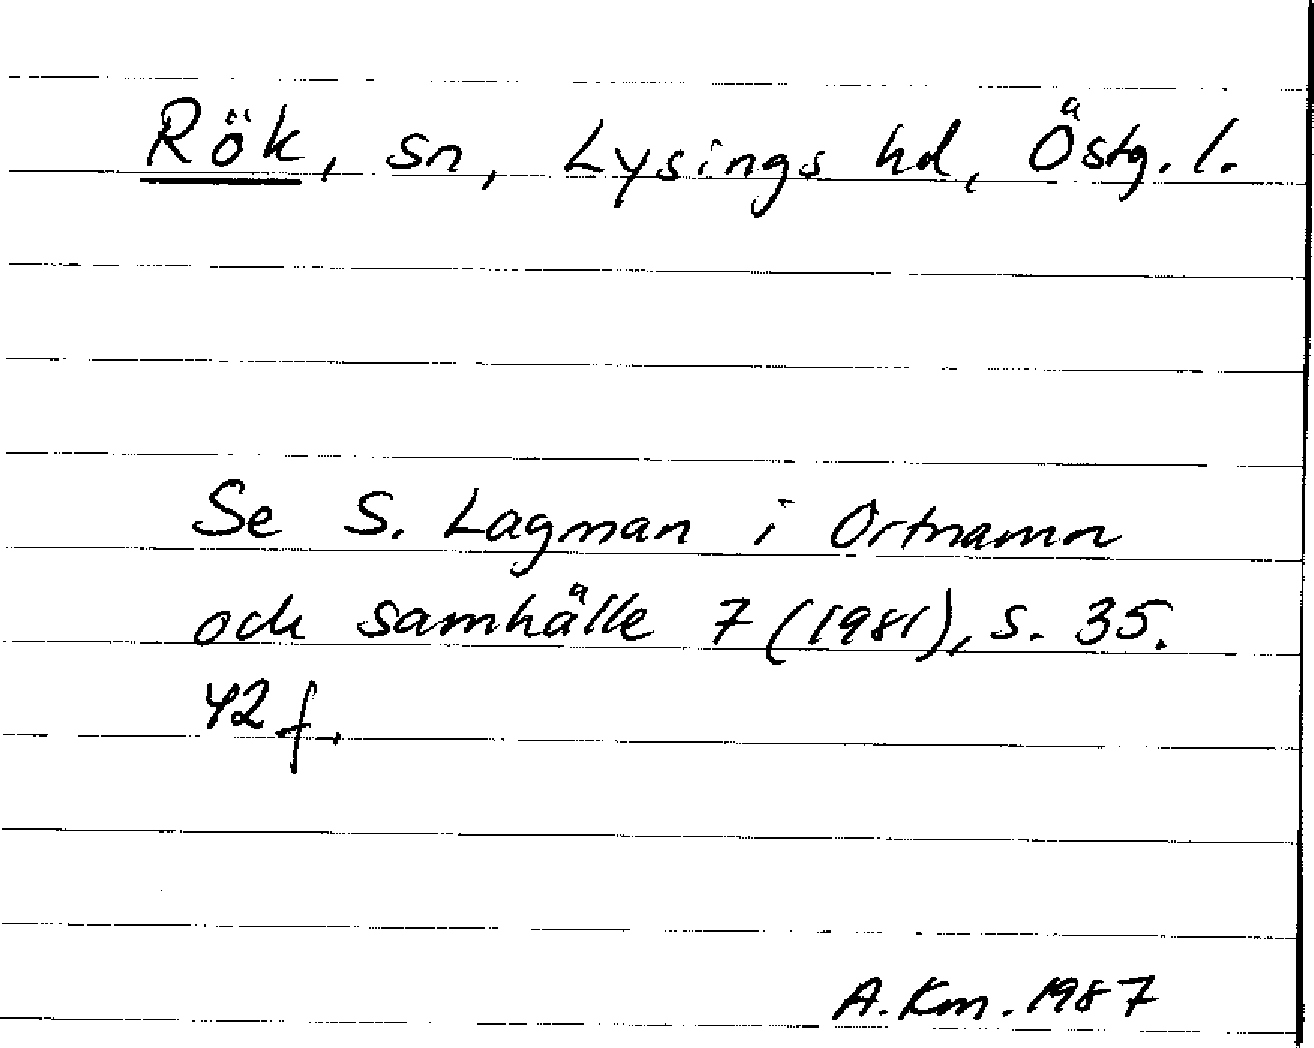 Rök, sn, Lysings hd, Östg. l.
Se S. Lagman i Ortnamn
och samhälle 7 (1981), s. 35.
42 f.
A. Km. 1987